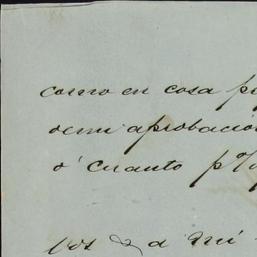 como en cosa
demi aprobacion
ó cuanto
& a mi